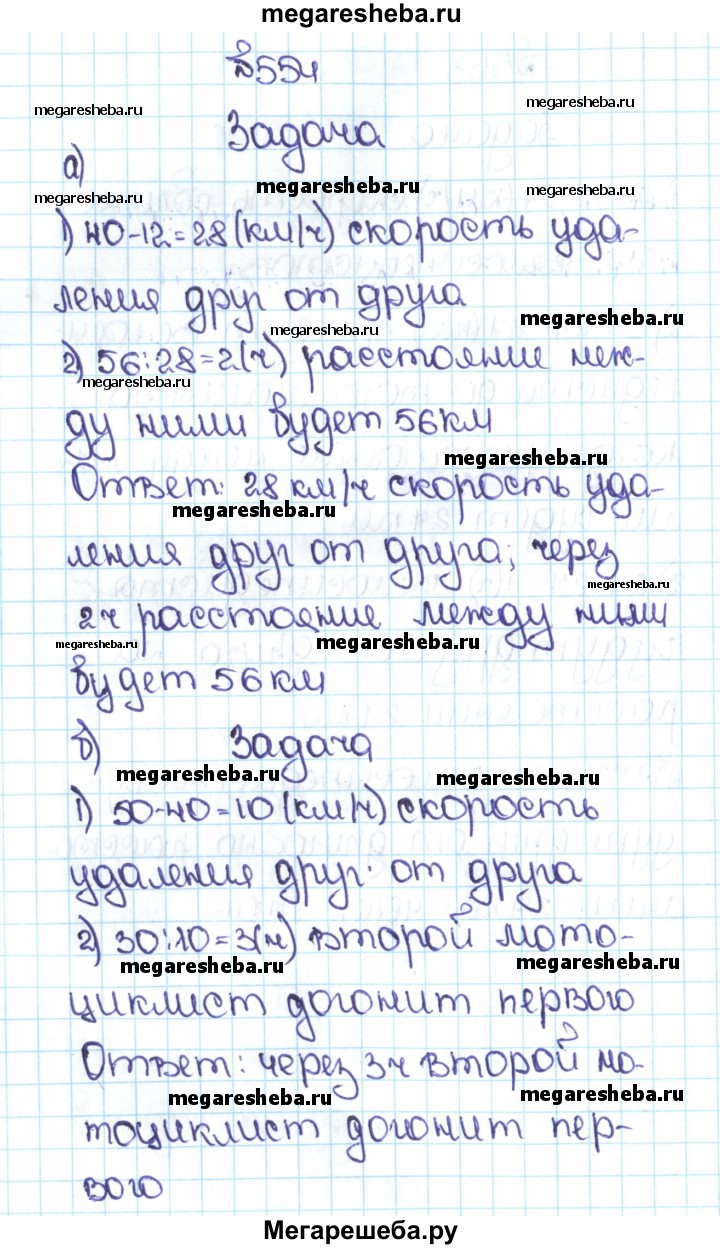 megaresheba.ru
№554
megaresheba.ru
megaresheba.ru
Задача
а)
megaresheba.ru
megaresheba.ru
megaresheba.ru
1) 40-12=28(км/ч) скорость уда-
ления друг от друга
megaresheba.ru
megaresheba.ru
2) 56:28=2(ч) расстояние меж-
megaresheba.ru
ду ними будет 56км
megaresheba.ru
Ответ: 28 км/ч скорость уда-
megaresheba.ru
ления друг от друга; через
megaresheba.ru
2ч расстояние между ними
megaresheba.ru
megaresheba.ru
будет 56км
б) Задача
megaresheba.ru
megaresheba.ru
1) 50-40=10(км/ч) скорость
удаления друг от друга
2) 30:10=3(ч) второй мото-
megaresheba.ru
megaresheba.ru
циклист догонит первого
Ответ: через 3ч второй мо-
megaresheba.ru
megaresheba.ru
тоциклист догонит пер-
вого
Мегарешеба.ру